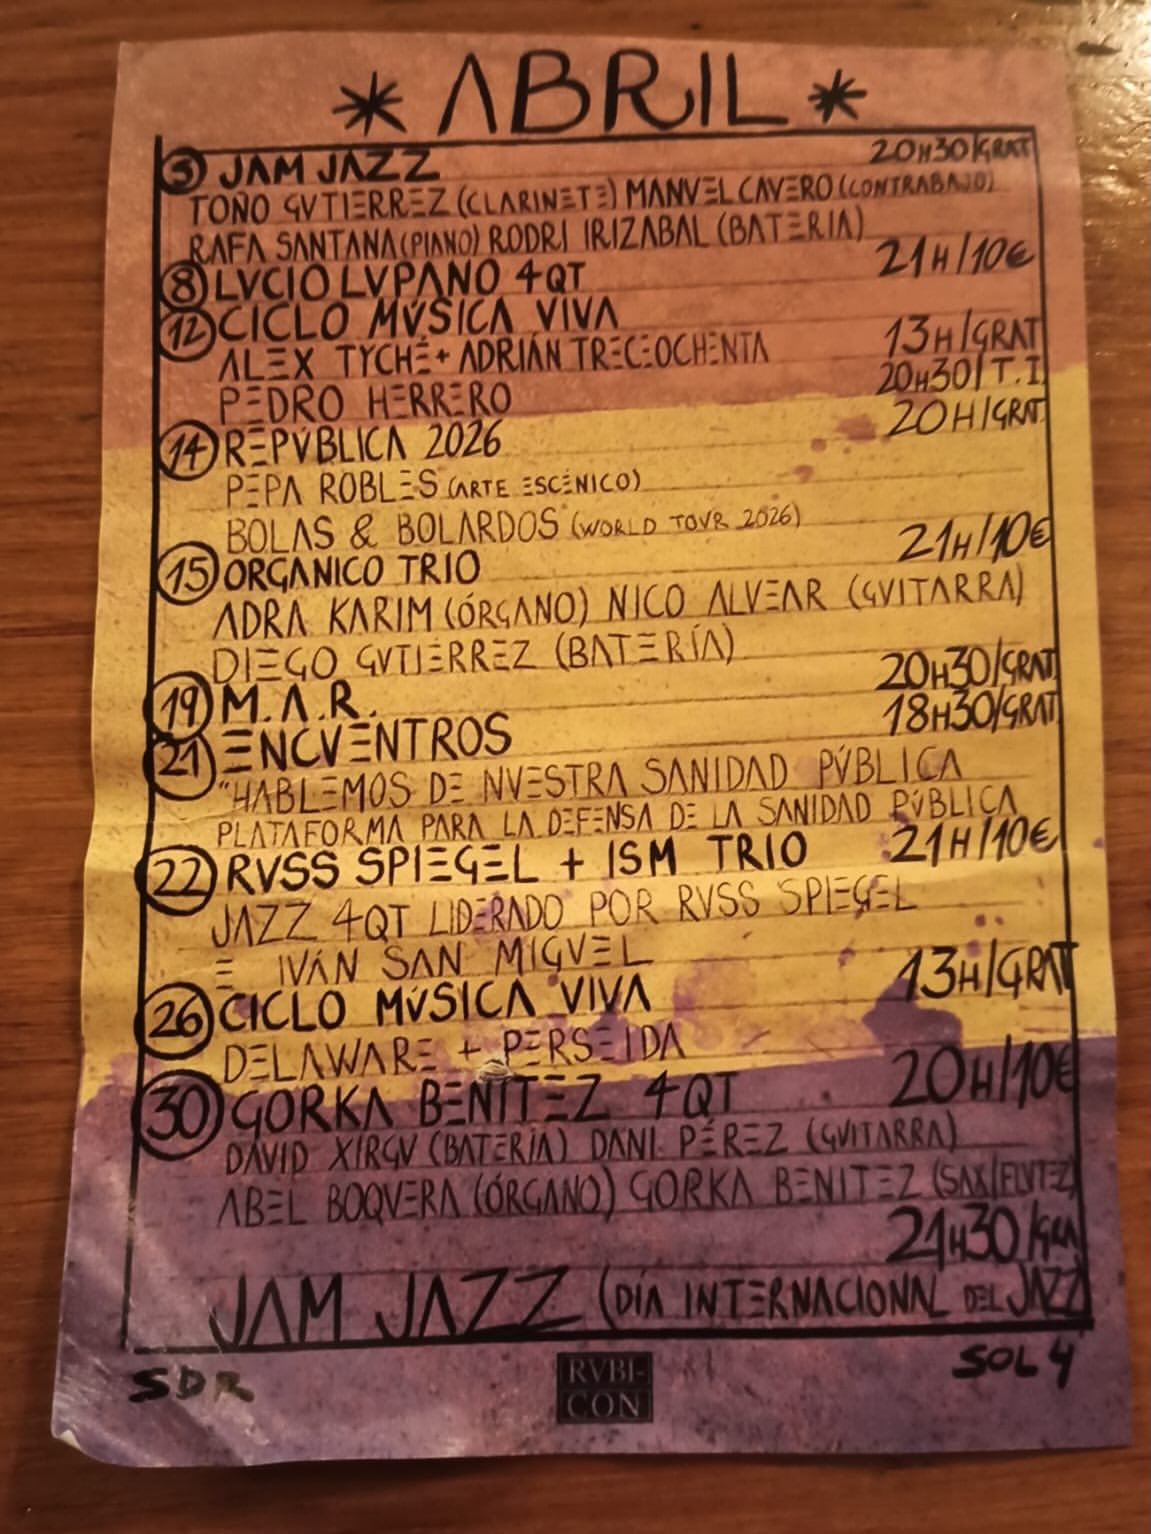 * ABRIL *
5 JAM JAZZ 20H30/GRAT
TOÑO GVTIERREZ (CLARINETE) MANVEL CAVERO (CONTRABAJO)
RAFA SANTANA (PIANO) RODRI IRIZABAL (BATERIA)
8 LVCIO LVPANO 4QT 21H/10€
12 CICLO MÚSICA VIVA
ALEX TYCHÉ + ADRIÁN TRECEOCHENTA 13H/GRAT
PEDRO HERRERO 20H30/T.I.
14 REPÚBLICA 2026 20H/GRAT.
PEPA ROBLES (ARTE ESCÉNICO)
BOLAS & BOLARDOS (WORLD TOVR 2026)
15 ORGANICO TRIO 21H/10€
ADRA KARIM (ÓRGANO) NICO ALVEAR (GVITARRA)
DIEGO GVTIÉRREZ (BATERÍA)
19 M.A.R. 20H30/GRAT
21 ENCVENTROS 18H30/GRAT
"HABLEMOS DE NVESTRA SANIDAD PÚBLICA
PLATAFORMA PARA LA DEFENSA DE LA SANIDAD PÚBLICA
22 RVSS SPIEGEL + ISM TRIO 21H/10€
JAZZ 4QT LIDERADO POR RVSS SPIEGEL
E IVÁN SAN MIGVEL
26 CICLO MÚSICA VIVA 13H/GRAT
DELAWARE + PERSEIDA
30 GORKA BENÍTEZ 4QT 20H/10€
DAVID XIRGV (BATERÍA) DANI PÉREZ (GVITARRA)
ABEL BOQVERA (ÓRGANO) GORKA BENITEZ (SAX/FLVTEZ)
21H30/GRA
JAM JAZZ (DÍA INTERNACIONAL DEL JAZZ)
SDR RVBI- SOL 4
CON